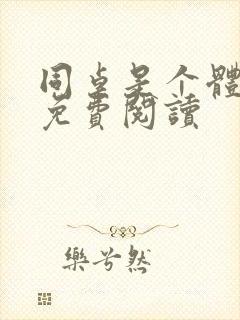 同桌是个體
免費閱讀
樂兮然